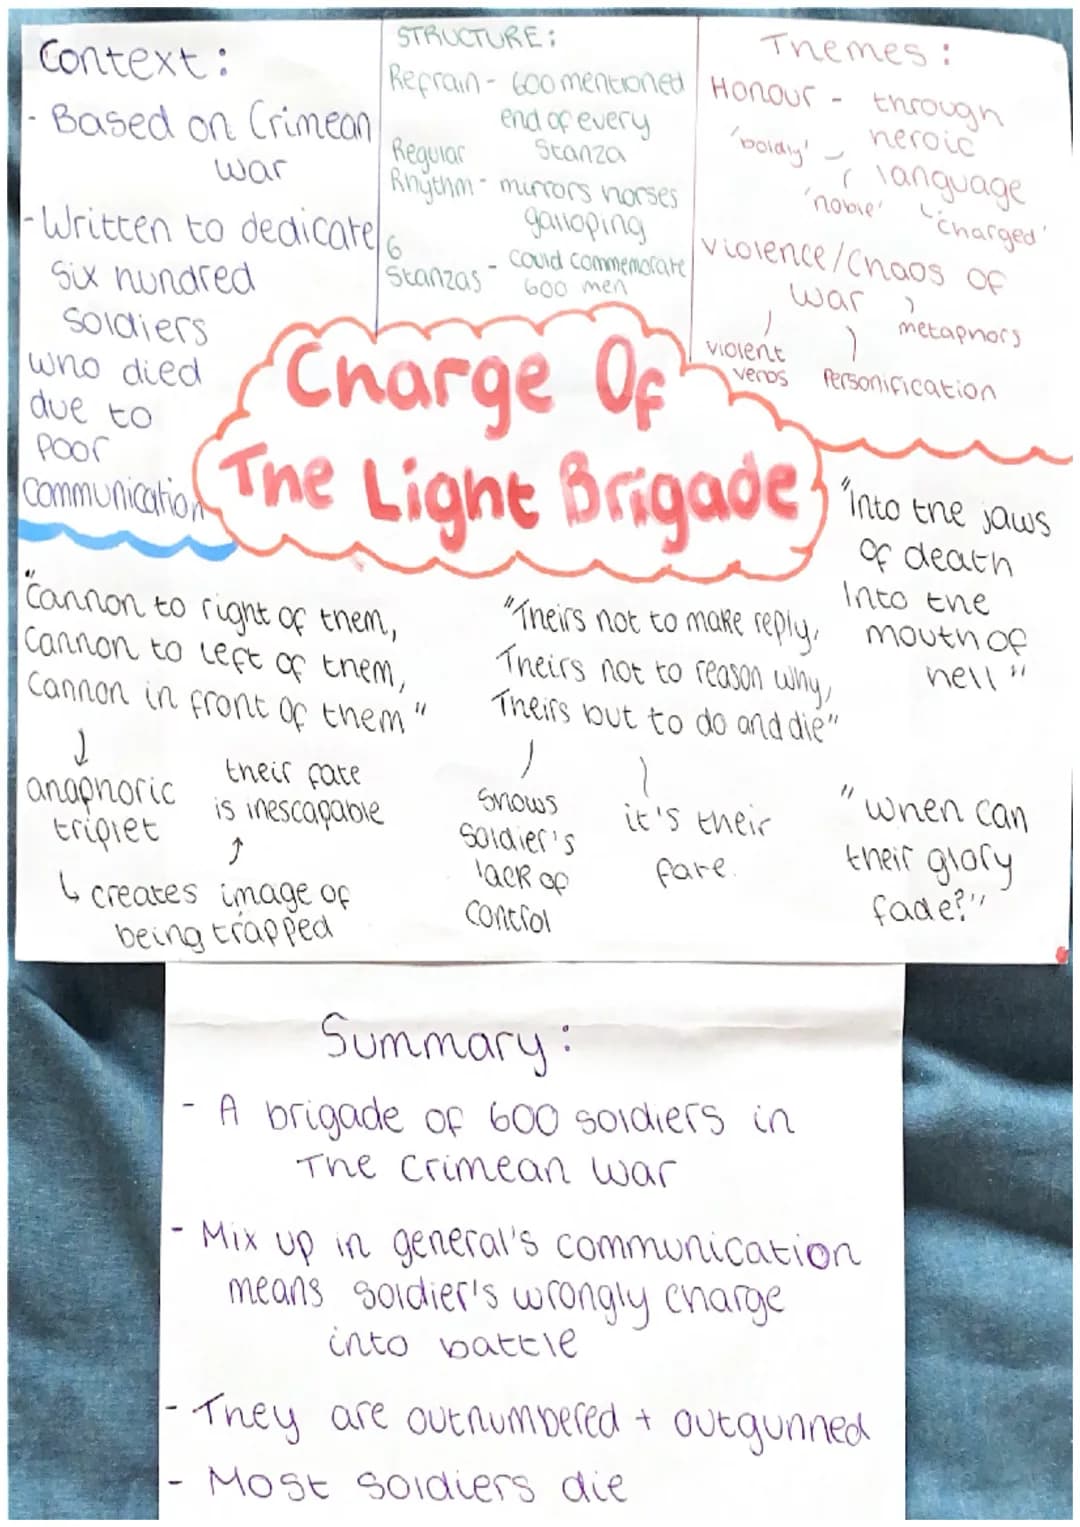 Context:
- Based on Crimean
war
- Written to dedicate
six hundred
soldiers
who died
due to
poor
communication
STRUCTURE:
Refrain - 600 mentioned
end of every
stanza
Regular
Rhythm - mirrors horses
galloping
6
Stanzas - could commemorate
600 men
Themes:
Honour - through
heroic
language
'boldly'
'noble'
'charged'
Violence/Chaos of
war
metaphors
violent
verbs
Personification
Charge Of
The Light Brigade
"Cannon to right of them,
Cannon to left of them,
Cannon in front of them"
anaphoric
triplet
their fate
is inescapable
↳ creates image of
being trapped
"Theirs not to make reply,
Theirs not to reason why,
Theirs but to do and die"
shows
soldier's
lack of
control
it's their
fate.
"Into the jaws
of death
Into the
mouth of
hell"
"When can
their glory
fade?"
Summary:
- A brigade of 600 soldiers in
The Crimean War
- Mix up in general's communication
means soldier's wrongly charge
into battle
- They are outnumbered + outgunned
- Most soldiers die